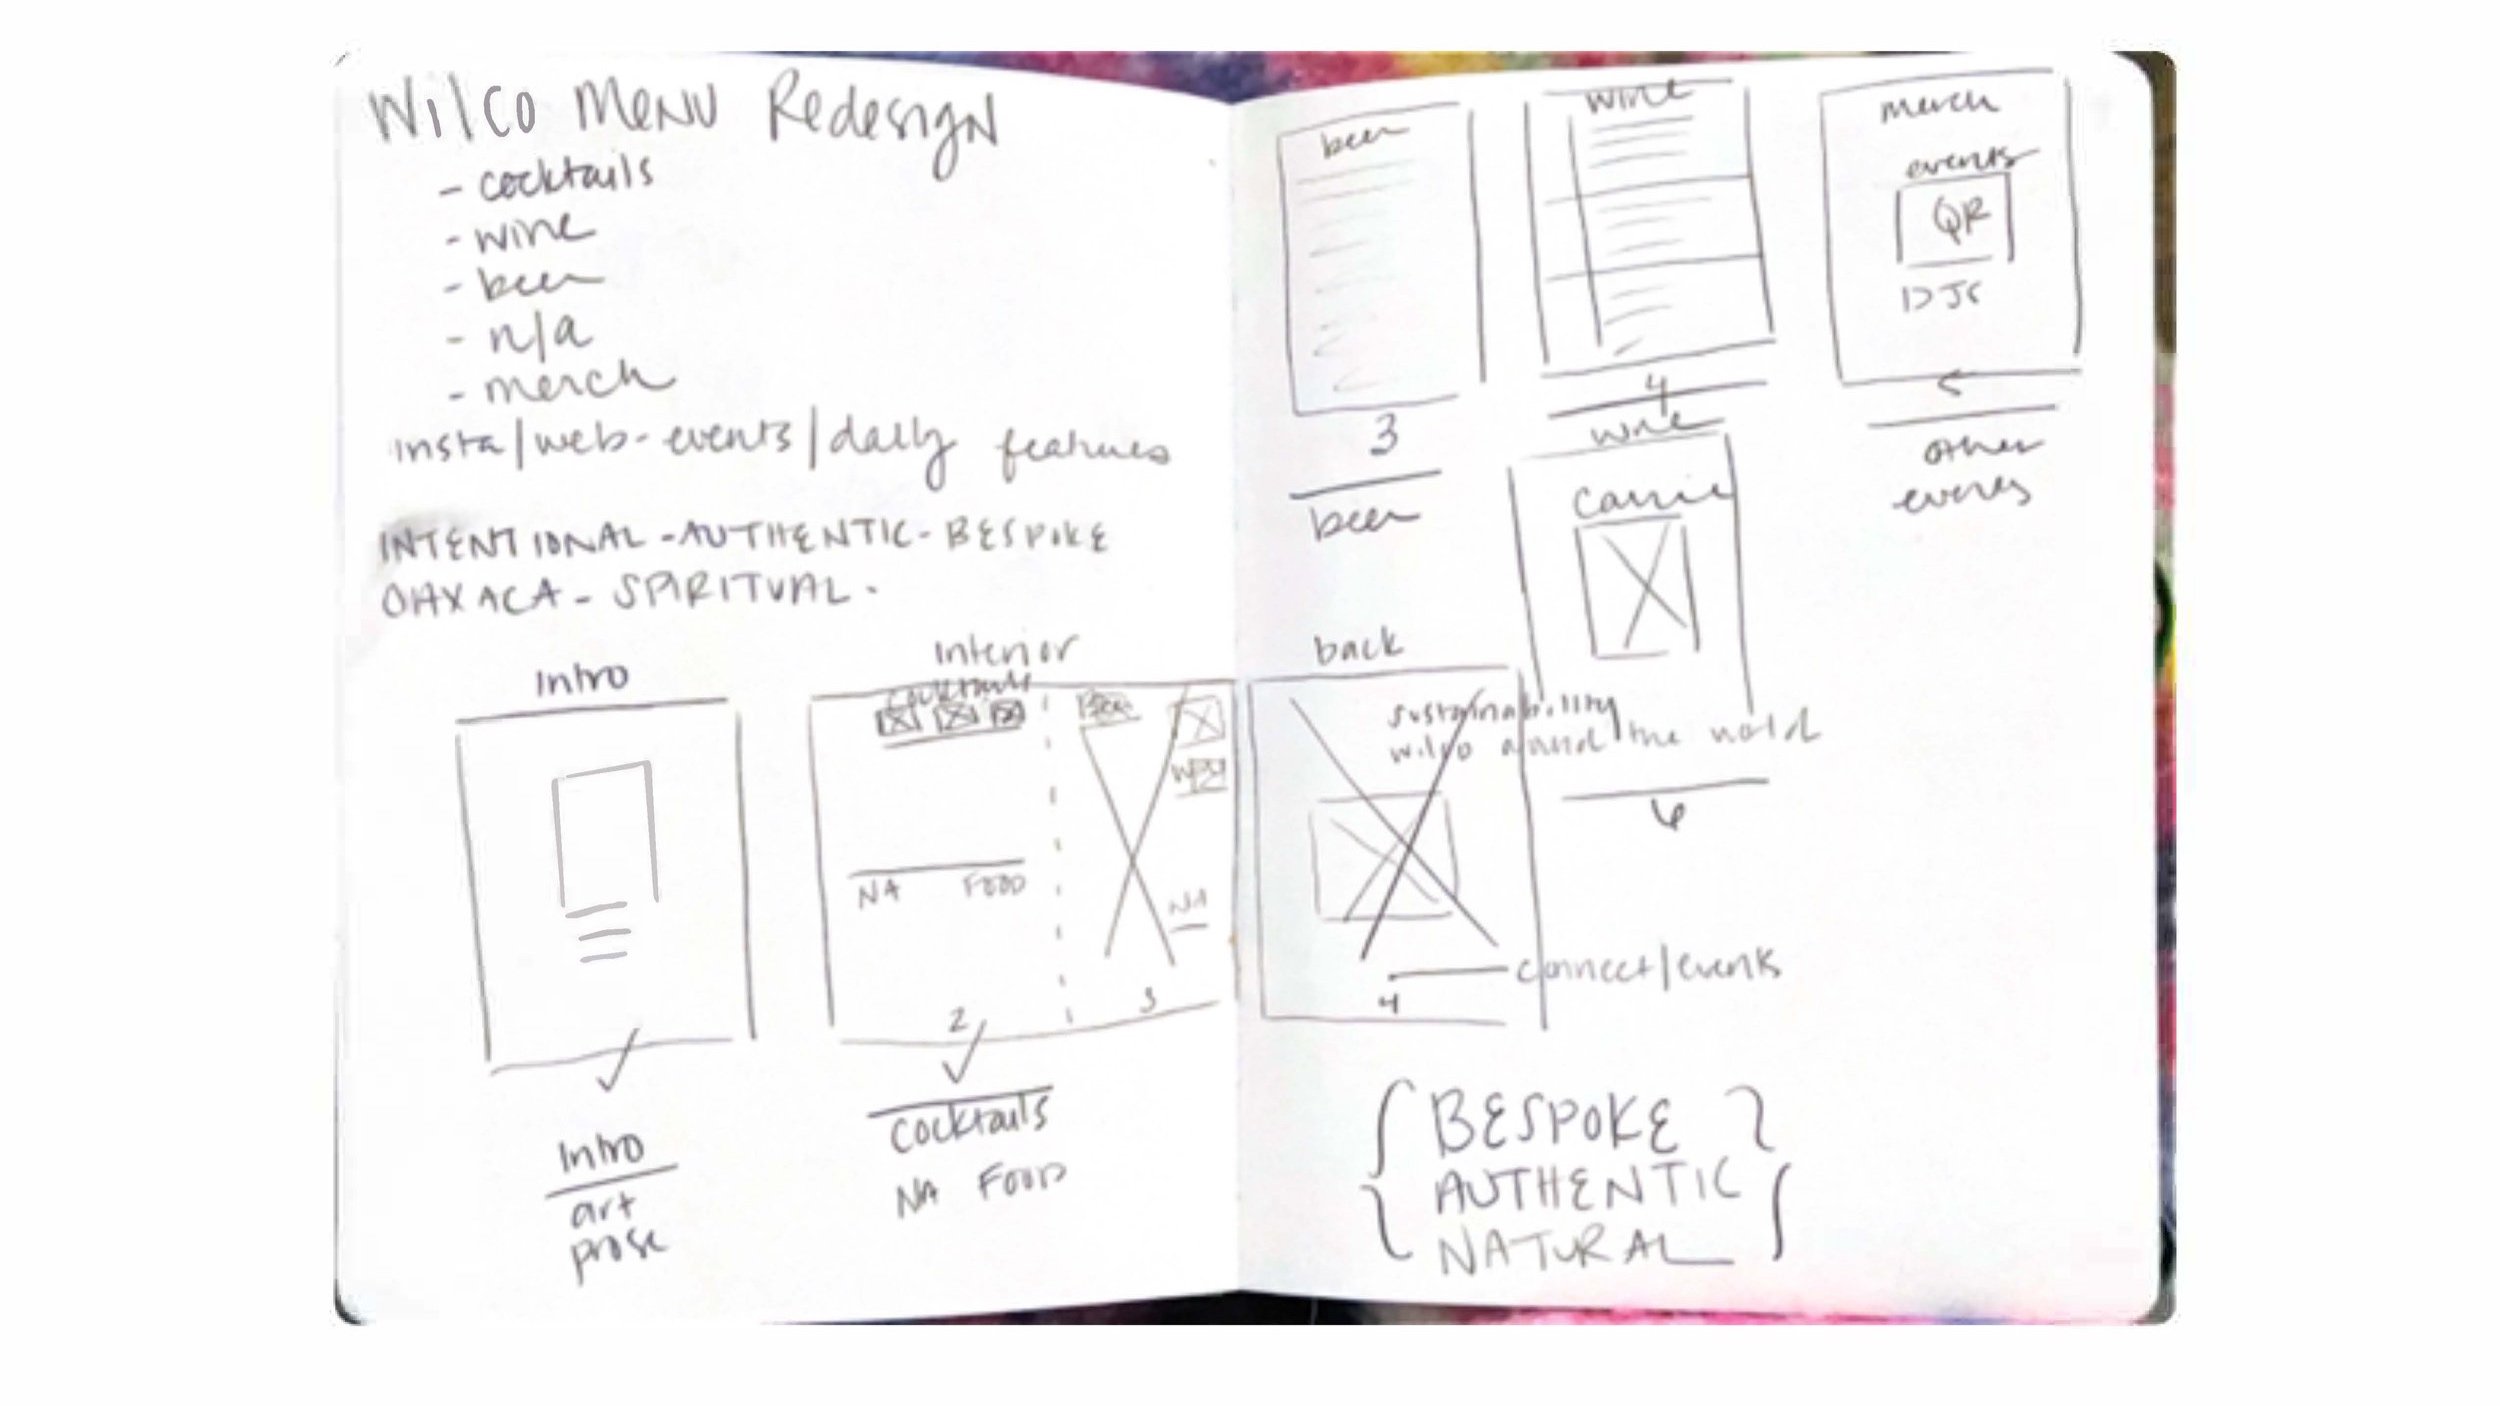 Wilco Menu Redesign
- cocktails
- wine
- beer
- n/a
- merch
insta/web-events/daily features
INTENTIONAL-AUTHENTIC-BESPOKE
OAXACA-SPIRITUAL-
Intro
Interior
cocktails
NA FOOD
2
✓
cocktails
NA FOOD
Beer
NA
3
✓
Intro
art
prose
beer
3
beer
wine
4
wine
merch
events
QR
DJs
5
other
events
Carrie
6
back
sustainability
wilco around the world
connect/events
4
{BESPOKE}
{AUTHENTIC}
NATURAL